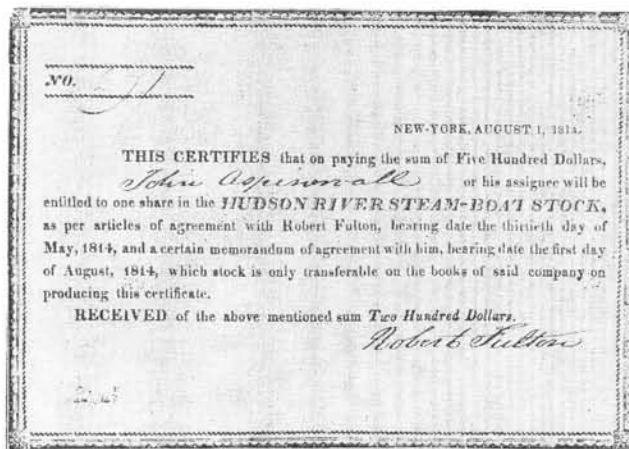 NO.
NEW-YORK, AUGUST 1, 1814.
THIS CERTIFIES that on paying the sum of Five Hundred Dollars,
John Aspinwall or his assignee will be
entitled to one share in the HUDSON RIVER STEAM-BOAT STOCK,
as per articles of agreement with Robert Fulton, bearing date the thirtieth day of
May, 1814, and a certain memorandum of agreement with him, bearing date the first day
of August, 1814, which stock is only transferable on the books of said company on
producing this certificate.
RECEIVED of the above mentioned sum Two Hundred Dollars.
Robert Fulton